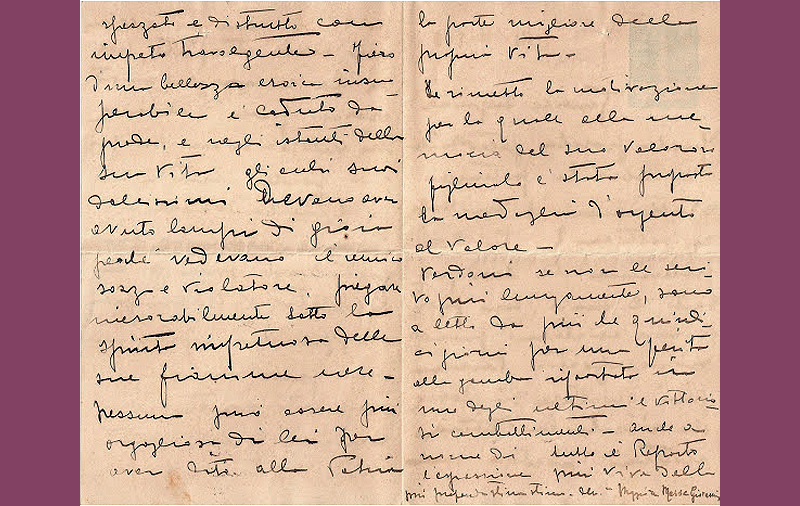 spezzato e distrutto con
impeto travolgente - Fiero
d'una bellezza eroica insu-
perabile è caduto da
prode, e negli istanti della
sua vita gli occhi suoi
dolcissimi devono aver
avuto lampi di gioia
perché vedevano il nemico
sozzo e violatore, piegare
inesorabilmente sotto la
spinta impetuosa delle
sue fiamme nere -
Nessuna può essere più
orgogliosa di lei per
aver dato alla Patria
la parte migliore della
propria vita -
Le rimetto la motivazione
per la quale alla me-
moria del suo valoroso
figliuolo è stata proposta
la medaglia d'argento
al valore -
Perdoni se non le scri-
vo più lungamente, sono
a letto da più di quindi-
ci giorni per una ferita
alla gamba riportata in
uno degli ultimi e vittorio-
si combattimenti - anche a
nome di tutto il Reparto
l'espressione più viva della
più profonda stima